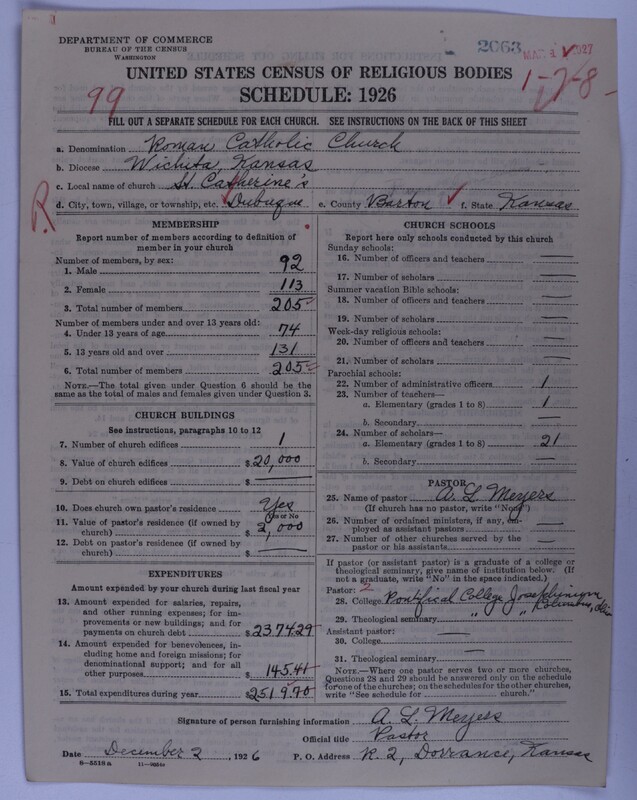 DEPARTMENT OF COMMERCE
BUREAU OF THE CENSUS
WASHINGTON
2063
1927
UNITED STATES CENSUS OF RELIGIOUS BODIES
1-7-8-
99
SCHEDULE: 1926
FILL OUT A SEPARATE SCHEDULE FOR EACH CHURCH. SEE INSTRUCTIONS ON THE BACK OF THIS SHEET
a. Denomination Roman Catholic Church
b. Diocese Wichita, Kansas
c. Local name of church St. Catherine's
d. City, town, village, or township, etc. Dubuque e. County Barton f. State Kansas
MEMBERSHIP
Report number of members according to definition of
member in your church
Number of members, by sex:
1. Male 92
2. Female 113
3. Total number of members 205
Number of members under and over 13 years old:
4. Under 13 years of age 74
5. 13 years old and over 131
6. Total number of members 205
NOTE.—The total given under Question 6 should be the
same as the total of males and females given under Question 3.
CHURCH BUILDINGS
See instructions, paragraphs 10 to 12
7. Number of church edifices 1
8. Value of church edifices $20,000
9. Debt on church edifices $ —
10. Does church own pastor's residence Yes
Yes or No
11. Value of pastor's residence (if owned by
church) $2,000
12. Debt on pastor's residence (if owned by
church) $ —
EXPENDITURES
Amount expended by your church during last fiscal year
13. Amount expended for salaries, repairs,
and other running expenses; for im-
provements or new buildings; and for
payments on church debt $2374.29
14. Amount expended for benevolences, in-
cluding home and foreign missions; for
denominational support; and for all
other purposes $145.41
15. Total expenditures during year $2519.70
CHURCH SCHOOLS
Report here only schools conducted by this church
Sunday schools:
16. Number of officers and teachers —
17. Number of scholars —
Summer vacation Bible schools:
18. Number of officers and teachers —
19. Number of scholars —
Week-day religious schools:
20. Number of officers and teachers —
21. Number of scholars —
Parochial schools:
22. Number of administrative officers 1
23. Number of teachers—
a. Elementary (grades 1 to 8) 1
b. Secondary —
24. Number of scholars—
a. Elementary (grades 1 to 8) 21
b. Secondary —
PASTOR
25. Name of pastor A. L. Meyers
(If church has no pastor, write "None")
26. Number of ordained ministers, if any, em-
ployed as assistant pastors —
27. Number of other churches served by the
pastor or his assistants —
If pastor (or assistant pastor) is a graduate of a college or
theological seminary, give name of institution below. (If
not a graduate, write "No" in the space indicated.)
Pastor: 2
28. College Pontifical College Josephinum
Columbus, Ohio
29. Theological seminary " " "
Assistant pastor: —
30. College —
31. Theological seminary —
NOTE.—Where one pastor serves two or more churches,
Questions 28 and 29 should be answered only on the schedule
for one of the churches; on the schedules for the other churches,
write "See schedule for church."
Signature of person furnishing information A. L. Meyers
Official title Pastor
Date December 2, 1926 P. O. Address R. 2, Dorrance, Kansas
8—5518a